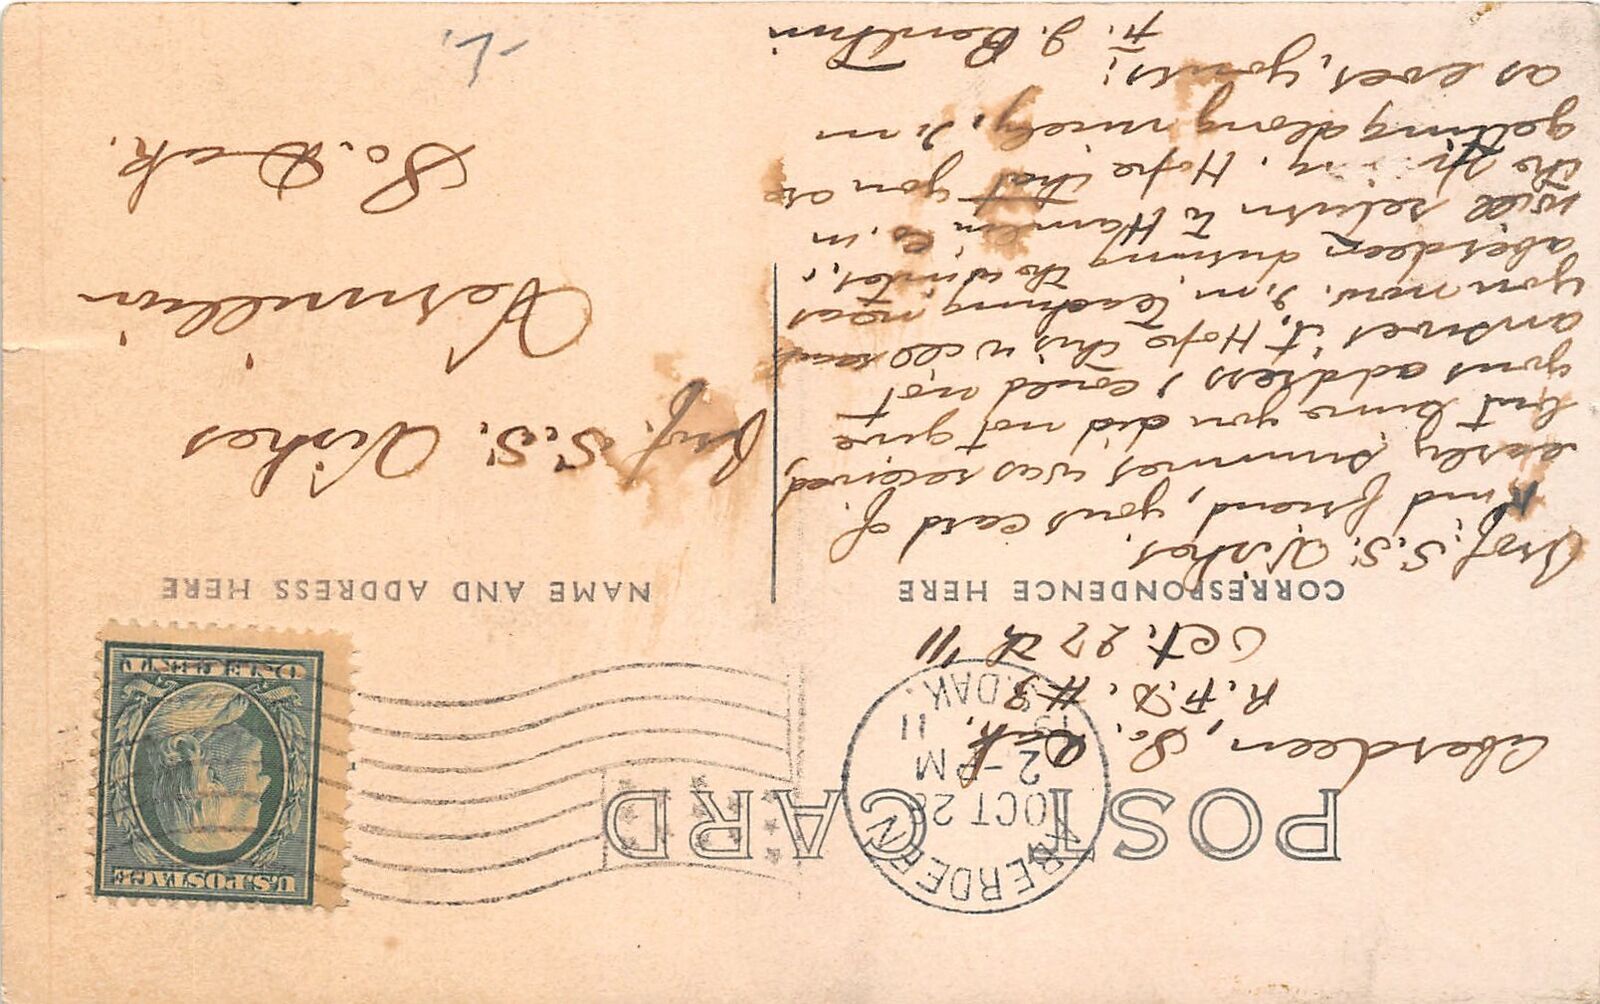 POST CARD
ABERDEEN
OCT 28
2-PM
1911
S.DAK.
U.S. POSTAGE
Aberdeen, So. Dak.
R.F.D. #3
Oct. 27th '11
CORRESPONDENCE HERE
Prof. S.S. Visher.
Kind friend, your card of
early summer was received,
but since you did not give
your address, I could not
answer it. Hope this will reach
you now. I'm teaching near
Aberdeen during the winter,
will return to Hamlin Co. in
the. Hope that you are
getting along nicely, I'm
as ever, yours:
H. J.
NAME AND ADDRESS HERE
Prof. S.S. Visher
Vermillion
So. Dak.